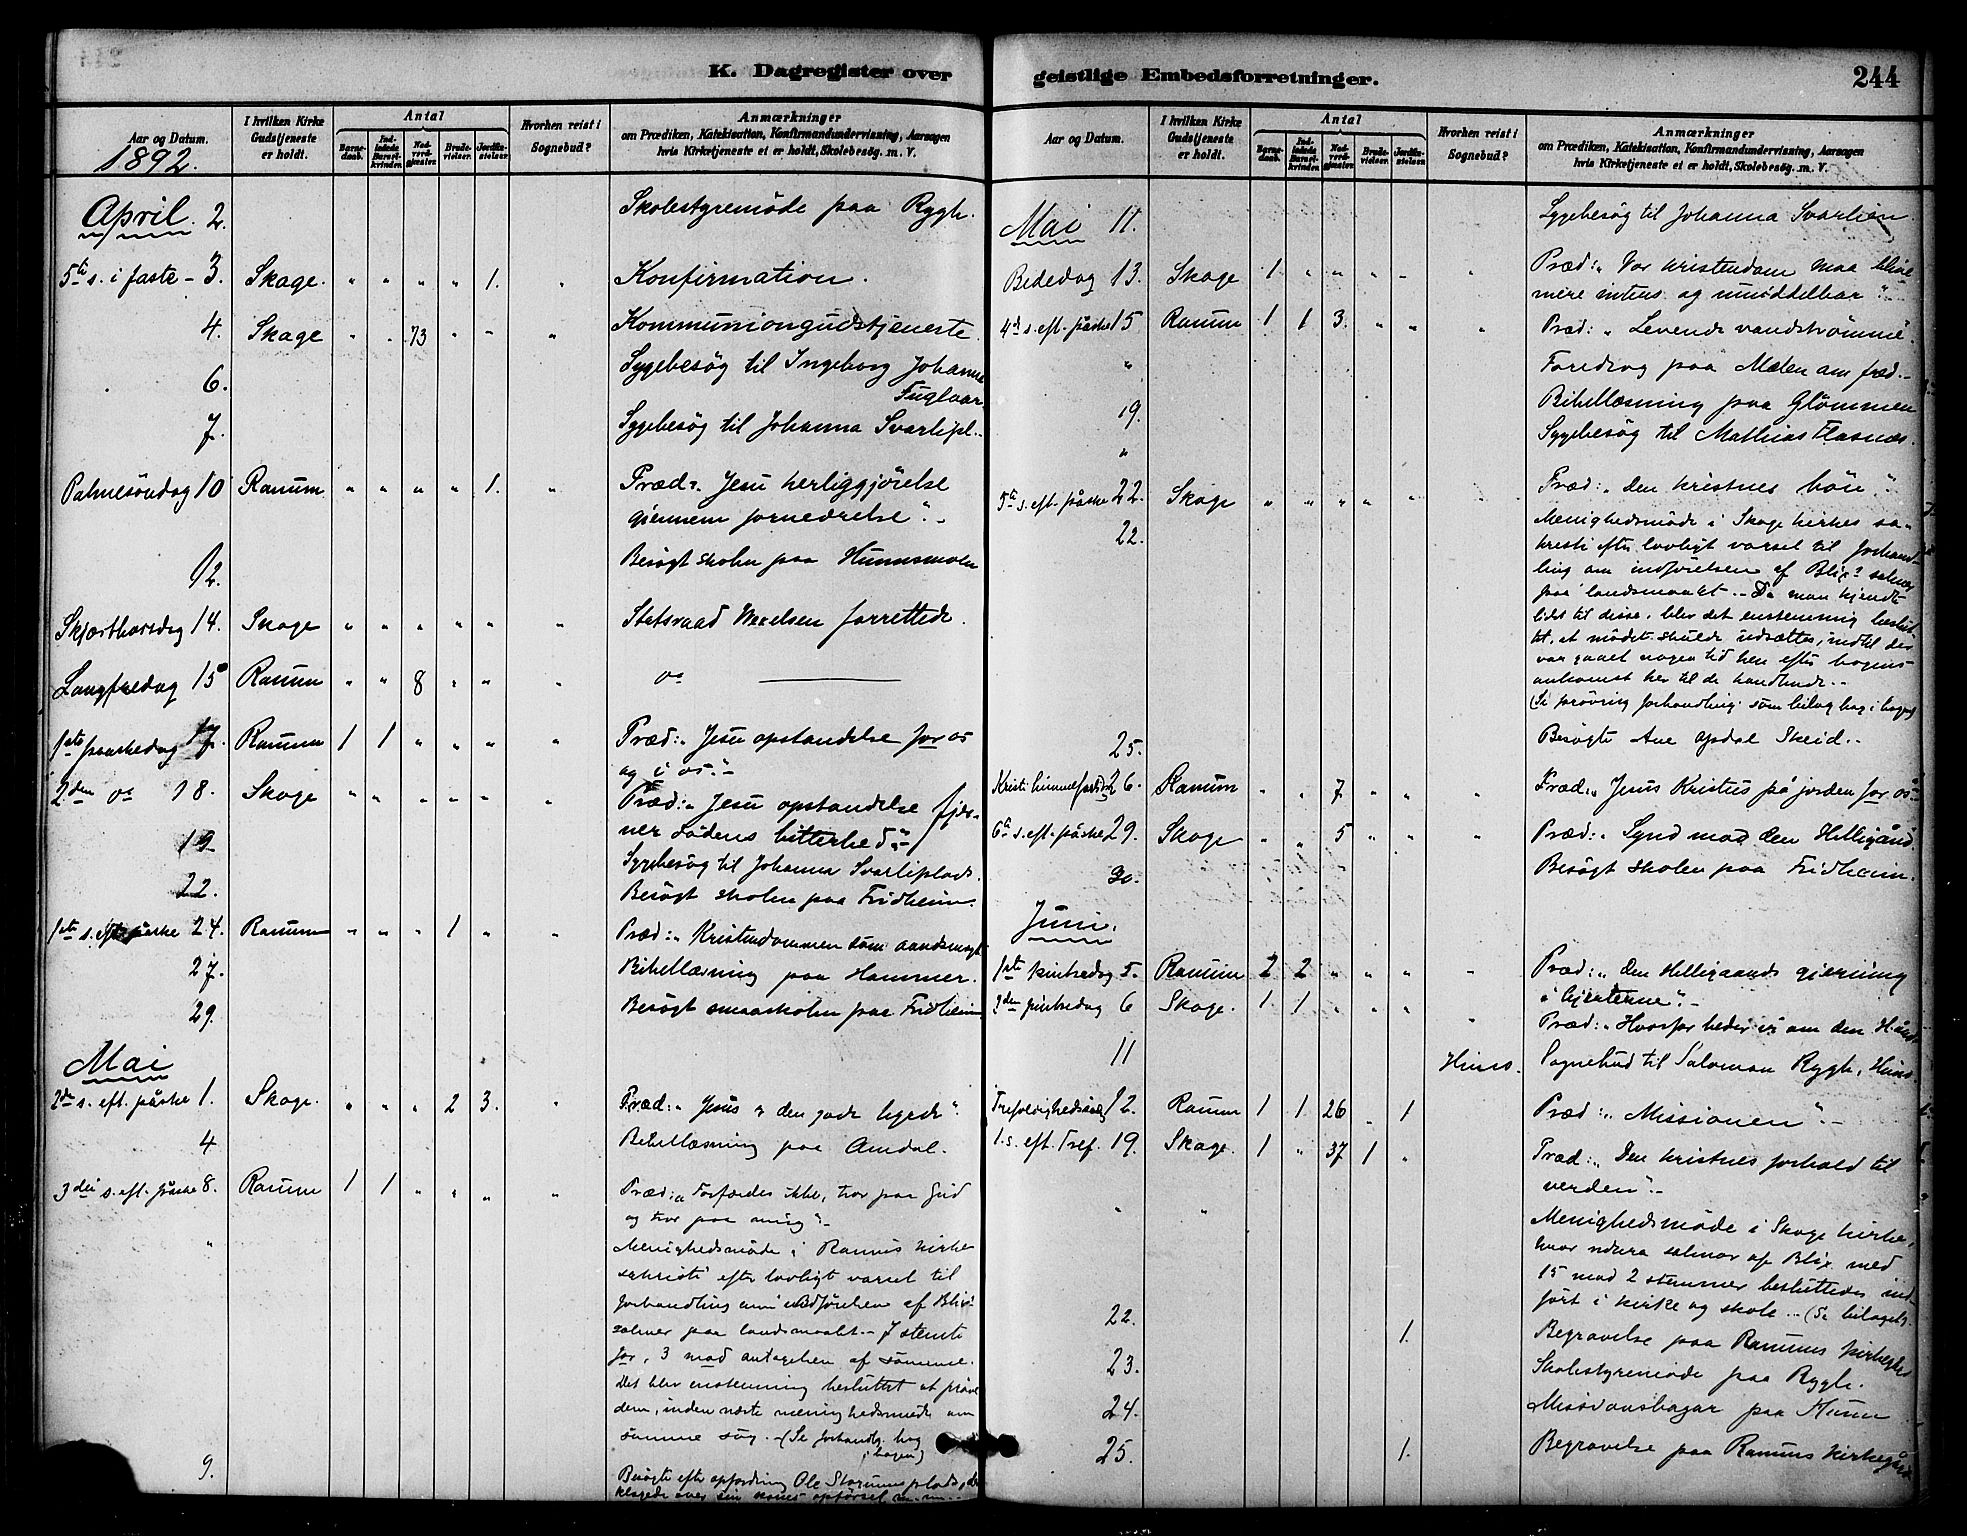 K. Dagregister over
Aar og Datum.
1892.
I hvilken Kirke
Gudstjeneste
er holdt.
Antal
Barne-
daab.
Ind-
ledede
Barsel-
kvinder.
Nad-
verd-
gjæster.
Brude-
vielser.
Jordfæ-
stelser.
Hvorhen reist i
Sognebud?
Anmærkninger
om Prædiken, Katekisation, Konfirmandundervisning, Aarsagen
hvis Kirketjeneste ei er holdt, Skolebesøg. m. V.
April 2. Skolestyremöde paa Rygh.
5te s. i faste - 3. Skage. " " " " 1. " Konfirmation.
4. Skage " " 73 " " " Kommuniongudstjeneste
6. Sygebesög til Ingeborg Johanne
Fuglaar.
7. Sygebesög til Johanna Svarlipl.
Palmesöndag 10 Ranum " " " " 1. " Præd: "Jesu herliggjørelse
gjennem fornedrelse". -
12. Besögt skolen paa Hunnsmoen
Skjærthorsdag 14. Skage " " " " " " Statsraad Wexelsen forrettede.
Langfredag 15 Ranum " " 8 " " " do
1ste paaskedag 17. Ranum 1 1 " " " " Præd: "Jesu opstandelse for os
og i os." -
2den do 18. Skage " " " " " " Præd: "Jesu opstandelse fjer-
ner dödens bitterhed". -
19 Sygebesög til Johanna Svarliplads.
22. Besögt skolen paa Fridheim.
1ste s. eft. påske 24. Ranum " " " 1 " " Præd: "Kristendommen som aandsmagt
27. Bibellæsning paa Hammer.
29. Besögt smaaskolen paa Fridheim
Mai
2den s. eft. påske 1. Skage. " " " 2 3. " Præd: "Jesus er den gode hyrde".
4 Bibellæsning paa Amdal.
3die s. eft. påske 8. Ranum 1 1 " " " " Præd: "Forfærdes ikke, tror paa Gud
og tror paa mig". -
" Menighedsmöde i Ranums kirkes
sakristi efter lovligt varsel til
forhandling om indförelsen af Blix'
salmer paa landsmaalet. - 7 stemte
for, 3 mod antagelsen af samme.
Det blev enstemmig besluttet at pröve
dem, inden næste menighedsmöde om
samme sag. - (Se forhandlg. bag
i bogen)
9. Besögte efter opfordring Ole Storums plads, der
klagede over sin kones opförsel m. m. -
geistlige Embedsforretninger.
244
Aar og Datum.
I hvilken Kirke
Gudstjeneste
er holdt.
Antal
Barne-
daab.
Ind-
ledede
Barsel-
kvinder.
Nad-
verd-
gjæster.
Brude-
vielser.
Jordfæ-
stelser.
Hvorhen reist i
Sognebud?
Anmærkninger
om Prædiken, Katekisation, Konfirmandundervisning, Aarsagen
hvis Kirketjeneste ei er holdt, Skolebesøg. m. V.
Mai 11. Sygebesög til Johanna Svarlien
Bededag 13. Skage 1 " " " " " Præd: "Vor kristendom maa blive
mere intens og umiddelbar".
4de s. eft. påske 15. Ranum 1 1 3. " " " Præd: "Levende vandströmme".
" Foredrag paa Mælen om fred. -
19. Bibellæsning paa Glömmen
" Sygebesög til Mathias Flasnæs.
5te s. eft. påske 22. Skage " " " " " " Præd: "Den kristnes bön".
22. Menighedsmöde i Skage kirkes sa-
kristi efter lovligt varsel til forhand-
ling om indförelsen af Blix' salmer
paa landsmaalet. - Da man kjendte
lidet til disse, blev det enstemmig beslut-
tet, at mödet skulde udsættes, indtil der
var gaaet nogen tid hen efter bogens
ankomst her til de handlende. -
(Se forhandling som bilag bag i bogen)
25. Besögte Ane Opdal Skeid. -
Kristi himmelfartsdag 26. Ranum " " 7 " " " Præd: "Jesus Kristus på jorden for os".
6te s. eft. påske 29. Skage " " 5 " " " Præd: "Synd mod den Helligånd
30. Besögt skolen paa Fridheim.
Juni.
1ste pintsedag 5. Ranum 2 2 " " " " Præd: "Den Helligaands gjerning
i hjerterne". -
2den pintsedag 6 Skage. 1 1 " " " " Præd: "Hvorfor beder vi om den Hånd
11 Hunn. Sognebud til Salomon Rygh, Hunn.
Trefoldighedssöndag 12. Ranum 1 1 26 " 1 Præd: "Missionen". -
1. s. eft. Tref. 19. Skage. 1 " 37 1 " Præd: "Den kristnes forhold til
verden". -
" " Menighedsmöde i Skage kirke,
hvor salmer af Blix med
15 mod 2 stemmer besluttedes ind-
fört i kirke og skole. - (Se bilaget).
22. 1. Begravelse paa Ranums kirkegård
23. Skolestyremöde paa Rygh.
24. Missionsbazar paa Hunn
25. 1. Begravelse paa Ranums kirkegård